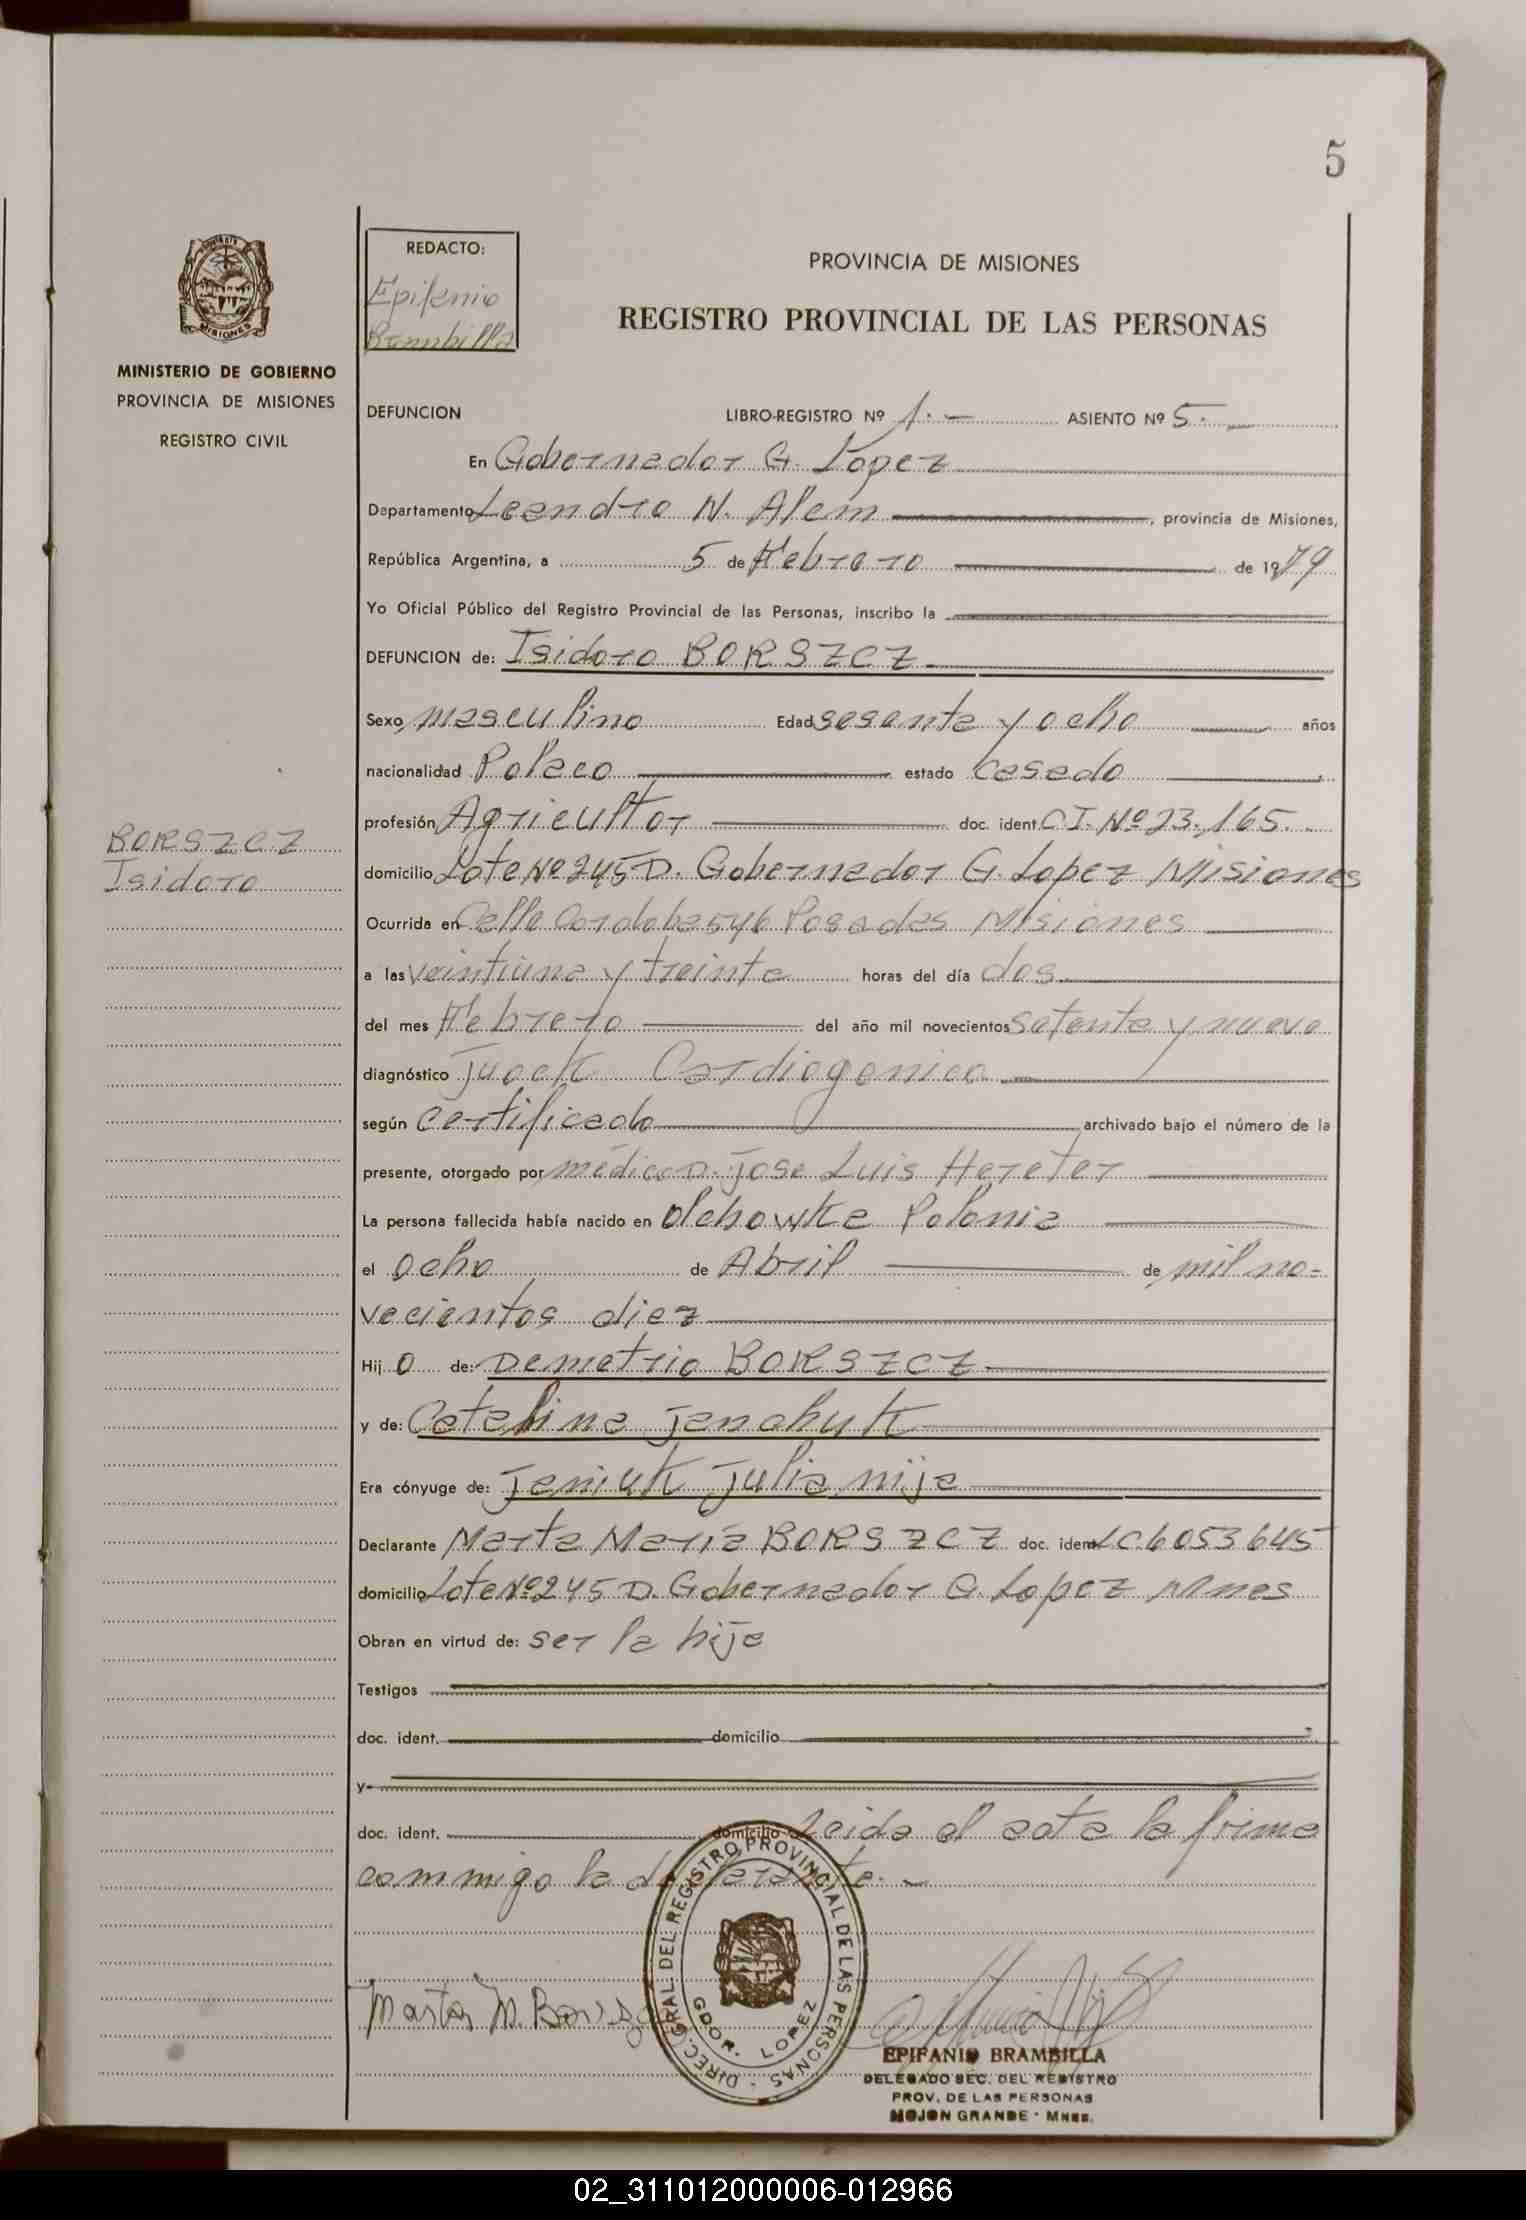 5
REDACTO:
Epifanio
Brambilla
PROVINCIA DE MISIONES
REGISTRO PROVINCIAL DE LAS PERSONAS
MISIONES
MINISTERIO DE GOBIERNO
PROVINCIA DE MISIONES
REGISTRO CIVIL
DEFUNCION LIBRO-REGISTRO Nº 1.- ASIENTO Nº 5.-
En Gobernador G. Lopez
Departamento Leandro N. Alem, provincia de Misiones,
República Argentina, a 5 de Febrero de 1979
Yo Oficial Público del Registro Provincial de las Personas, inscribo la
DEFUNCION de: Isidoro BORSZCZ
Sexo masculino Edad sesenta y ocho años
nacionalidad Polaco estado casado
profesión Agricultor doc. ident CI. Nº 23.165.
BORSZCZ
Isidoro
domicilio Lote Nº 245 D. Gobernador G. Lopez Misiones
Ocurrida en Calle Cordoba 546 Posadas Misiones
a las veintiuna y treinta horas del día dos
del mes Febrero del año mil novecientos setenta y nueve
diagnóstico Juock Cardiogenico
según certificado archivado bajo el número de la
presente, otorgado por médico D. Jose Luis Hereter
La persona fallecida había nacido en Olchowka Polonia
el ocho de Abril de mil no=
vecientos diez
Hijo de: Demetrio BORSZCZ
y de: Catalina Janchuk
Era cónyuge de: Jeniuk Julia nija
Declarante Marta María BORSZCZ doc. ident LC. 6053645
domicilio Lote Nº 245 D. Gobernador G. Lopez Mnes
Obran en virtud de: ser la hija
Testigos
doc. ident. domicilio
y
doc. ident. domicilio Leida el acta la firma
commigo la declarante.-
Marta M. Borszcz
DIREC. GRAL. DEL REGISTRO PROVINCIAL DE LAS PERSONAS
GDOR. LOPEZ
EPIFANIO BRAMBILLA
DELEGADO SEC. DEL REGISTRO
PROV. DE LAS PERSONAS
MOJON GRANDE - MNES.
02_311012000006-012966